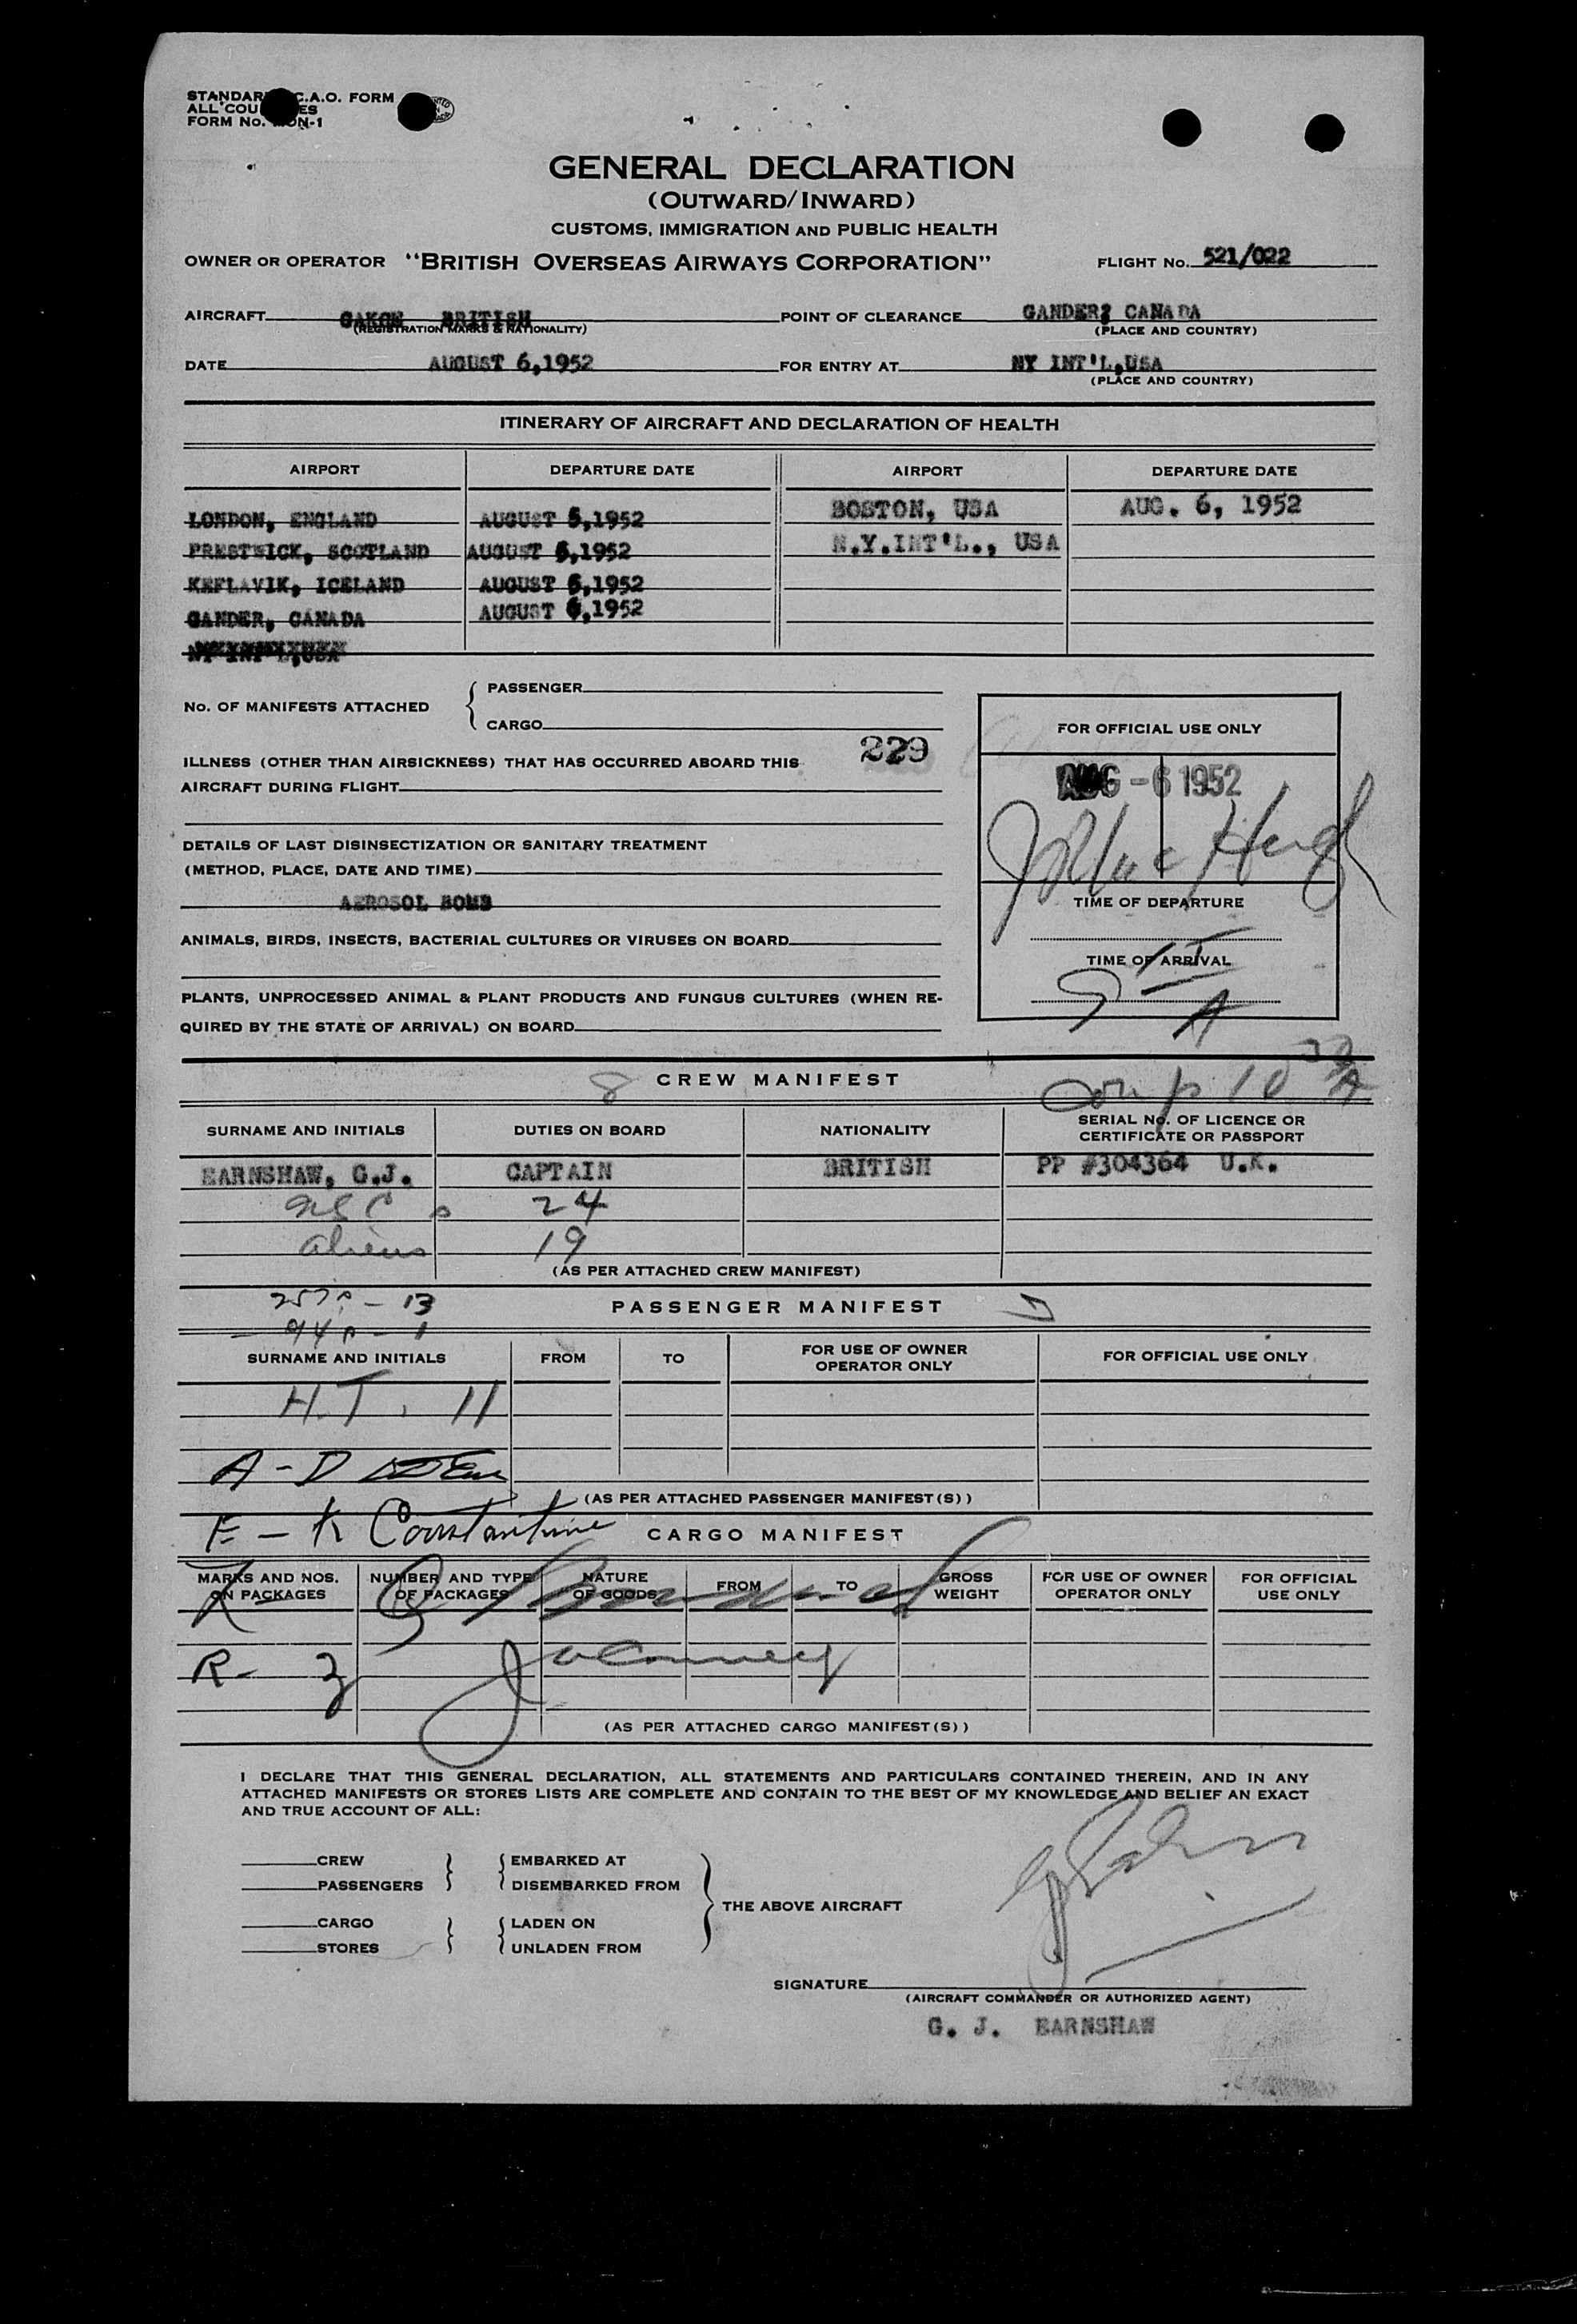 STANDAR C.A.O. FORM
ALL COU ES
FORM No. ON-1
GENERAL DECLARATION
(OUTWARD/INWARD)
CUSTOMS, IMMIGRATION AND PUBLIC HEALTH
OWNER OR OPERATOR "BRITISH OVERSEAS AIRWAYS CORPORATION" FLIGHT No. 521/022
AIRCRAFT BRITISH POINT OF CLEARANCE GANDER, CANADA
(REGISTRATION MARKS & NATIONALITY) (PLACE AND COUNTRY)
DATE AUGUST 6,1952 FOR ENTRY AT NY INT'L,USA
(PLACE AND COUNTRY)
ITINERARY OF AIRCRAFT AND DECLARATION OF HEALTH
AIRPORT DEPARTURE DATE AIRPORT DEPARTURE DATE
LONDON, ENGLAND AUGUST 5,1952 BOSTON, USA AUG. 6, 1952
PRESTWICK, SCOTLAND AUGUST 5,1952 N.Y.INT'L., USA
KEFLAVIK, ICELAND AUGUST 6,1952
GANDER, CANADA AUGUST 6,1952
NY INT'L,USA
No. OF MANIFESTS ATTACHED { PASSENGER
CARGO
FOR OFFICIAL USE ONLY
229
ILLNESS (OTHER THAN AIRSICKNESS) THAT HAS OCCURRED ABOARD THIS
AIRCRAFT DURING FLIGHT
AUG -6 1952
DETAILS OF LAST DISINSECTIZATION OR SANITARY TREATMENT
(METHOD, PLACE, DATE AND TIME)
AEROSOL BOMB
TIME OF DEPARTURE
ANIMALS, BIRDS, INSECTS, BACTERIAL CULTURES OR VIRUSES ON BOARD
TIME OF ARRIVAL
PLANTS, UNPROCESSED ANIMAL & PLANT PRODUCTS AND FUNGUS CULTURES (WHEN RE-
QUIRED BY THE STATE OF ARRIVAL) ON BOARD
A
8 CREW MANIFEST
SURNAME AND INITIALS DUTIES ON BOARD NATIONALITY SERIAL No. OF LICENCE OR
CERTIFICATE OR PASSPORT
EARNSHAW, G.J. CAPTAIN BRITISH PP #304364 U.K.
24
aliens 19
(AS PER ATTACHED CREW MANIFEST)
PASSENGER MANIFEST
SURNAME AND INITIALS FROM TO FOR USE OF OWNER
OPERATOR ONLY FOR OFFICIAL USE ONLY
H.T. 11
A - D
(AS PER ATTACHED PASSENGER MANIFEST(S))
E - K Constantine CARGO MANIFEST
MARKS AND NOS.
ON PACKAGES NUMBER AND TYPE
OF PACKAGES NATURE
OF GOODS FROM TO GROSS
WEIGHT FOR USE OF OWNER
OPERATOR ONLY FOR OFFICIAL
USE ONLY
R - Z
(AS PER ATTACHED CARGO MANIFEST(S))
I DECLARE THAT THIS GENERAL DECLARATION, ALL STATEMENTS AND PARTICULARS CONTAINED THEREIN, AND IN ANY
ATTACHED MANIFESTS OR STORES LISTS ARE COMPLETE AND CONTAIN TO THE BEST OF MY KNOWLEDGE AND BELIEF AN EXACT
AND TRUE ACCOUNT OF ALL:
CREW } { EMBARKED AT
PASSENGERS DISEMBARKED FROM
} THE ABOVE AIRCRAFT
CARGO } { LADEN ON
STORES UNLADEN FROM
SIGNATURE
(AIRCRAFT COMMANDER OR AUTHORIZED AGENT)
G. J. EARNSHAW